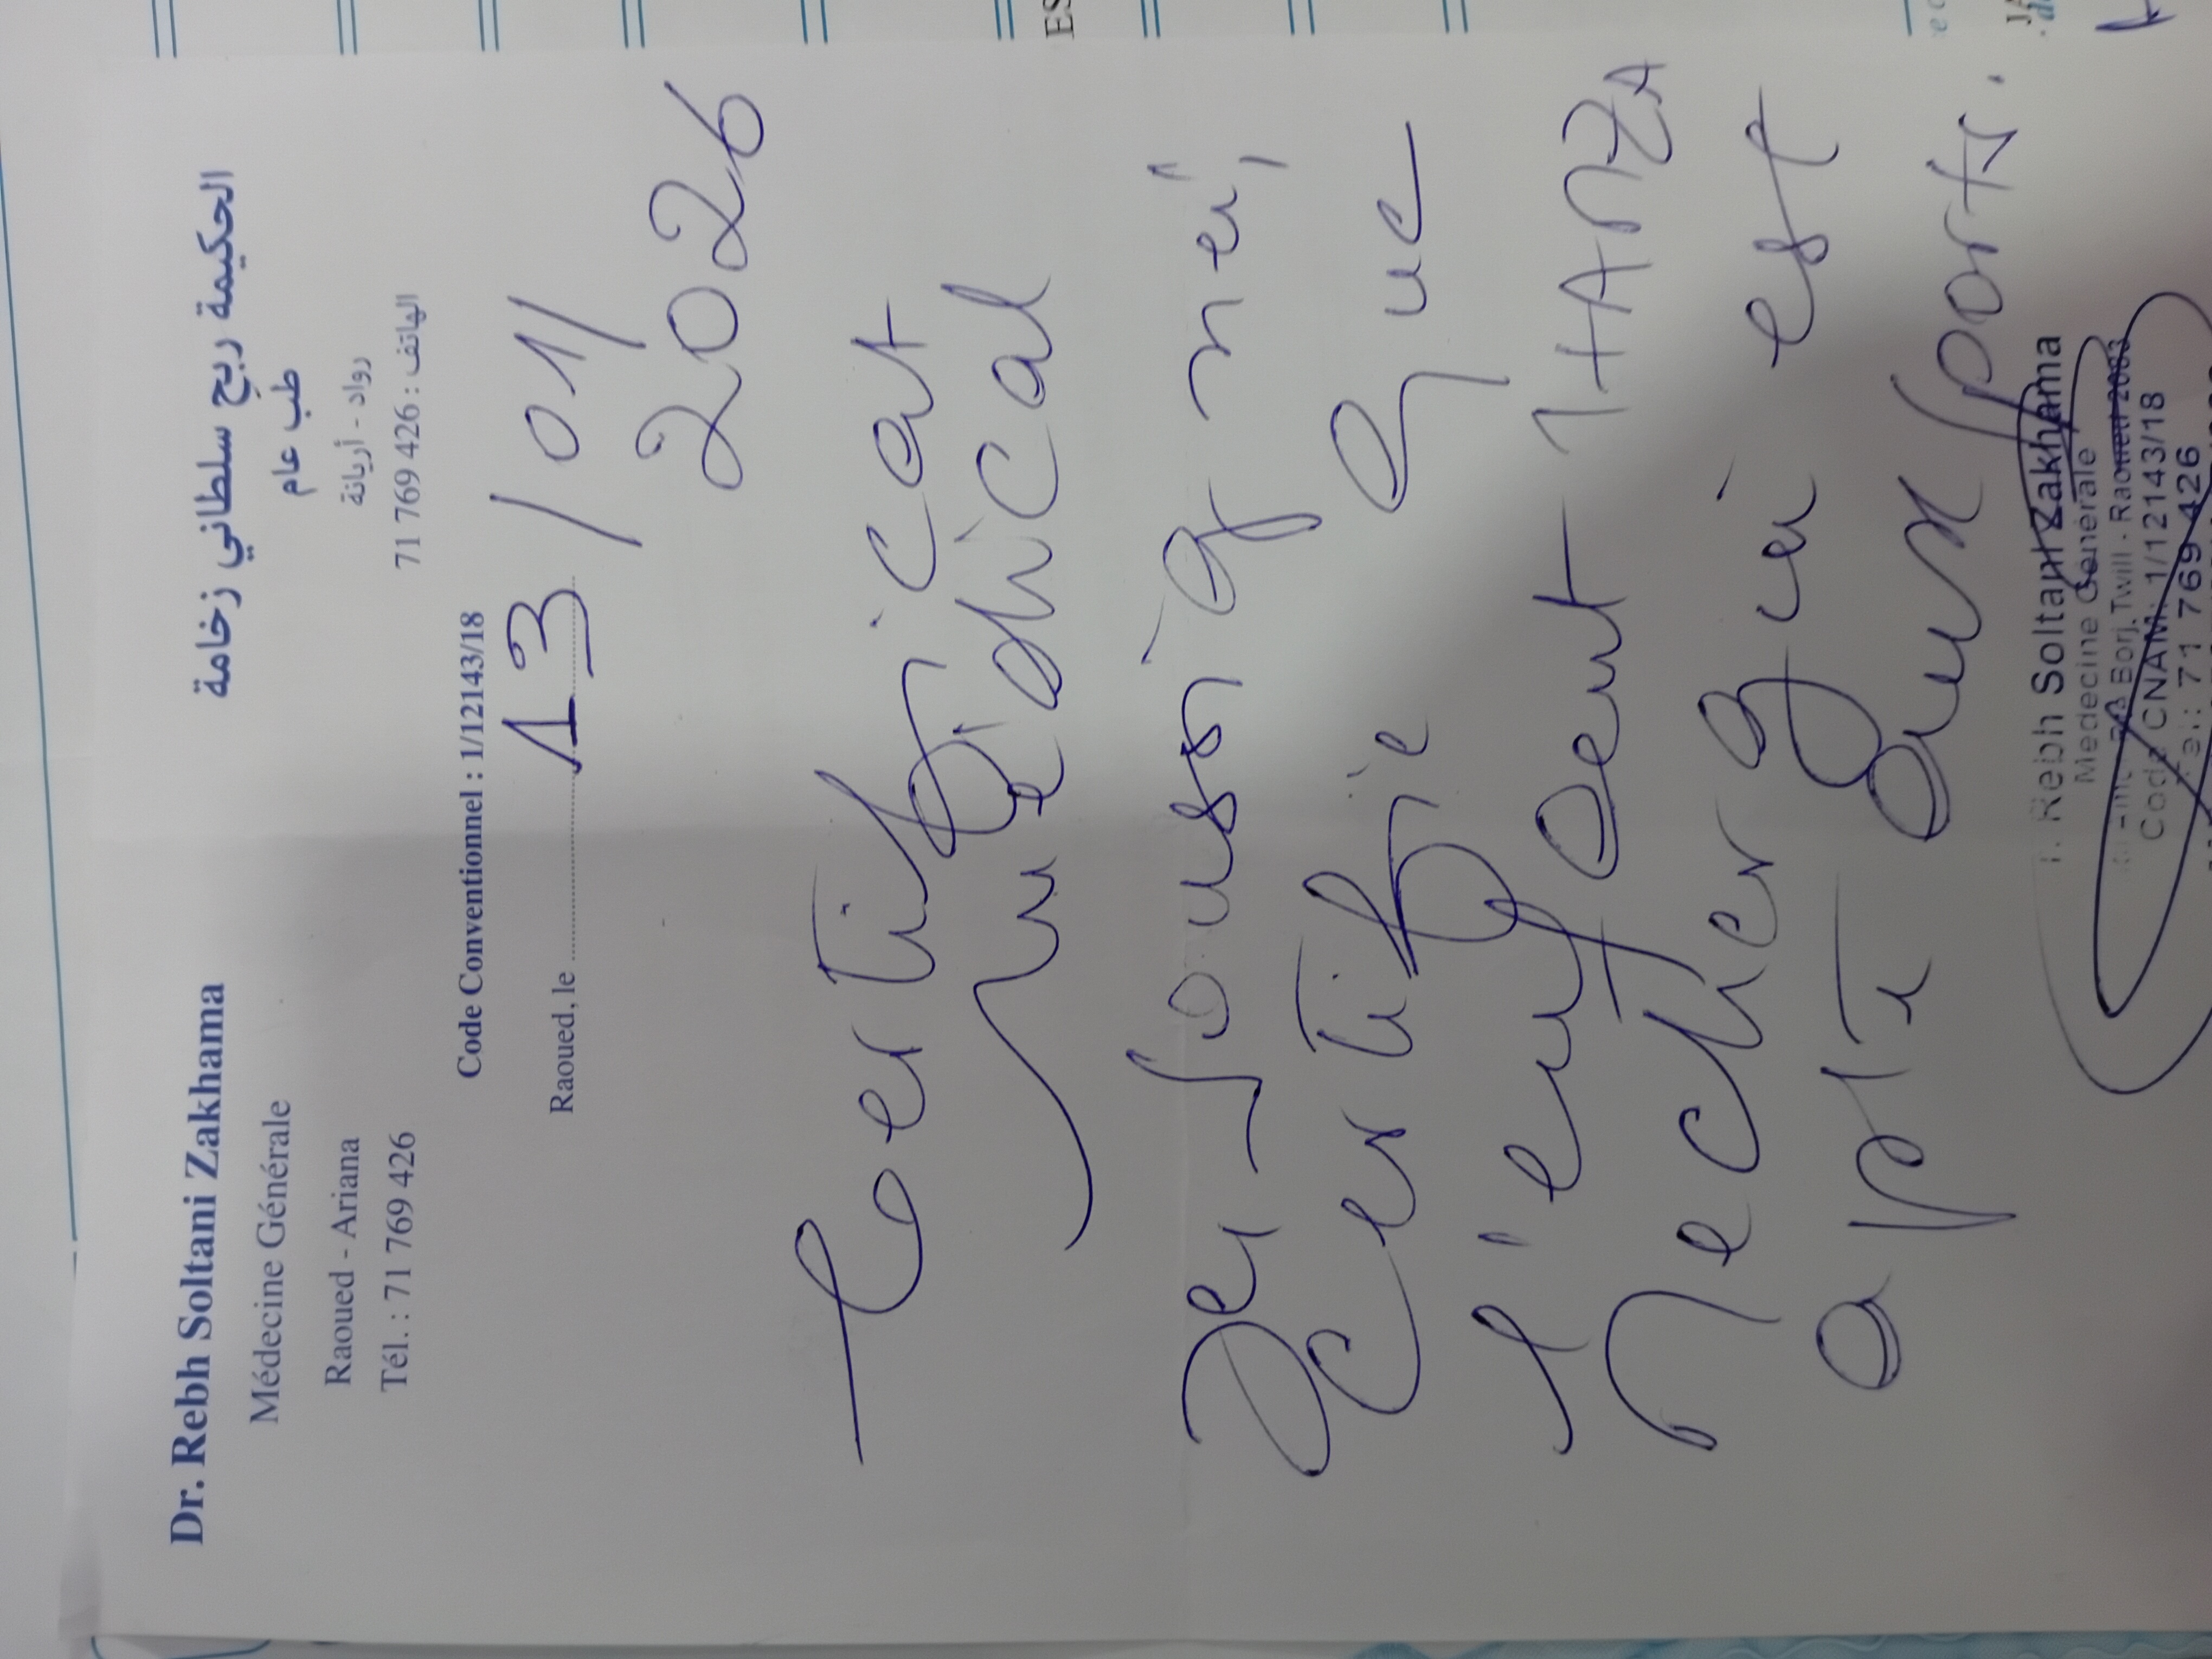 Dr. Rebh Soltani Zakhama
Médecine Générale
Raoued - Ariana
Tél. : 71 769 426
الحكيمة ربح سلطاني زخامة
طب عام
رواد - أريانة
الهاتف : 426 769 71
Code Conventionnel : 1/12143/18
Raoued, le 13/01/
2026
Certificat
médical
Je soussigné,
certifie que
l'enfant HAMZA
qui est
apte aux sports.
Rebh Soltani Zakhama
Medecine Generale
Borj Twill - Raoued 2083
Code CNAM: 1/12143/18
Tel: 71 769 426